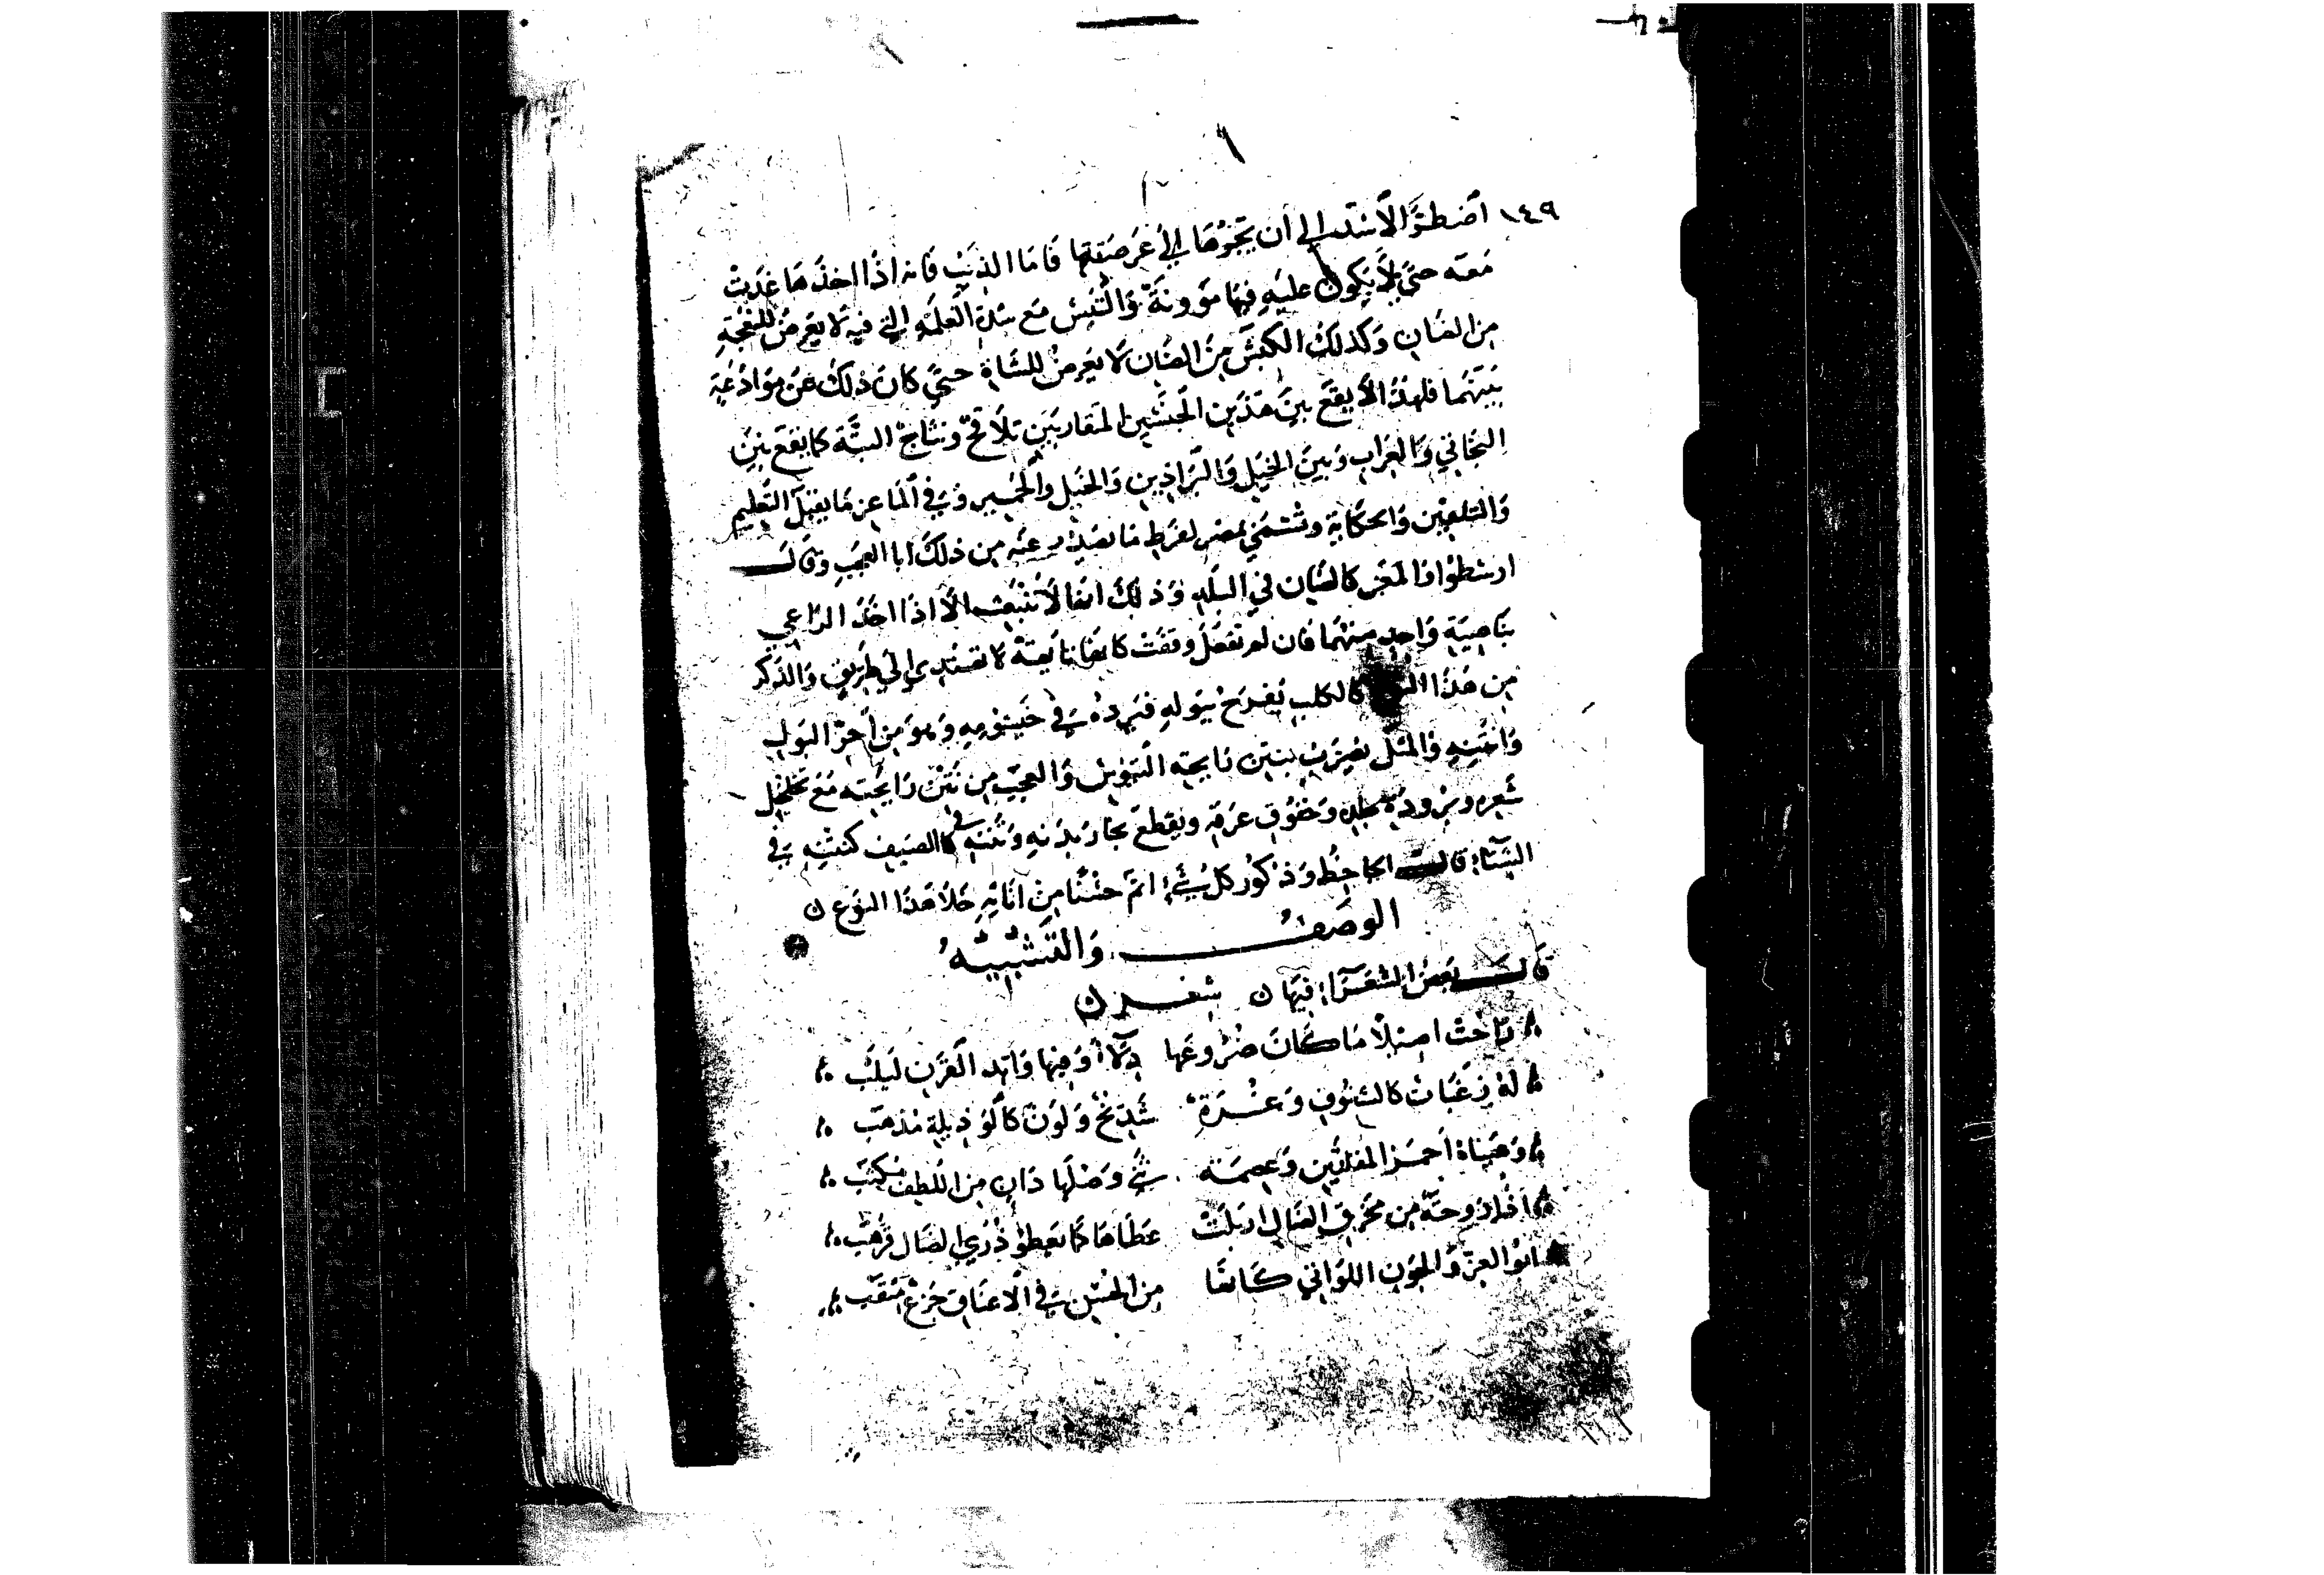 ١٤٩ اضطر الاسد الى ان يجرها الى عرصتها فاما الذيب فانه اذا اخذها غدت
معه حتى لا يكون عليه فيها مؤونة والتيس مع شدة الغلمة التي فيه لا يعرض للنعجة
من الضان وكذلك الكبش من الضان لا يعرض للشاة حتى كان ذلك عن موادعة
بينهما فلهذا لا يقع بين هذين الجنسين المتقاربين تلاقح ونتاج البتة كما يقع بين
البخاتي والعراب وبين الخيل والبراذين والخيل والحمير وفي الماعز ما يقبل التعليم
والتلقين والحكاية وتسمى بمصر لفرط ما يصدر عنه من ذلك ابا العجب وقال
ارسطو اما المعز كالضان في البلد وذلك انها لا تنبعث الا اذا اخذ الراعي
بناصية واحد منهما فان لم تفعل وقفت كانها تايهة لا تهتدي الى طريق والذكر
من هذا كالكلب يقزح ببوله فيرده في خيشومه وهو من احر البول
وانتنه والمثل يضرب بنتن رايحة التيوس والعجب من نتن رايحته مع تخلخل
شعره وبرودة جلده وجفوف عرقه ويقطع بخار بدنه ونتنه في الصيف كنتنه في
الشتاء قال الجاحظ وذكور كل شيء اتم حسنا من اناثه خلا هذا النوع ن
الوصف والتشبيه
قال بعض الشعراء فيها ن شعر ن
راحت اصيلا ما كان ضروعها دلاء وفيها واتد القرن لبلب
له زغبات كالشنوف وغرة شدخ ولون كالوذيلة مذهب
وعيناه احمر المقلتين وعصمة وصلها دان من
اذا دوحة من مخرف الضال اربلت عطاها كما يعطو ذرى الضال قرهب
ابو الغر والجون اللواتي كانها من الحسن في الاعناق جزع مثقب